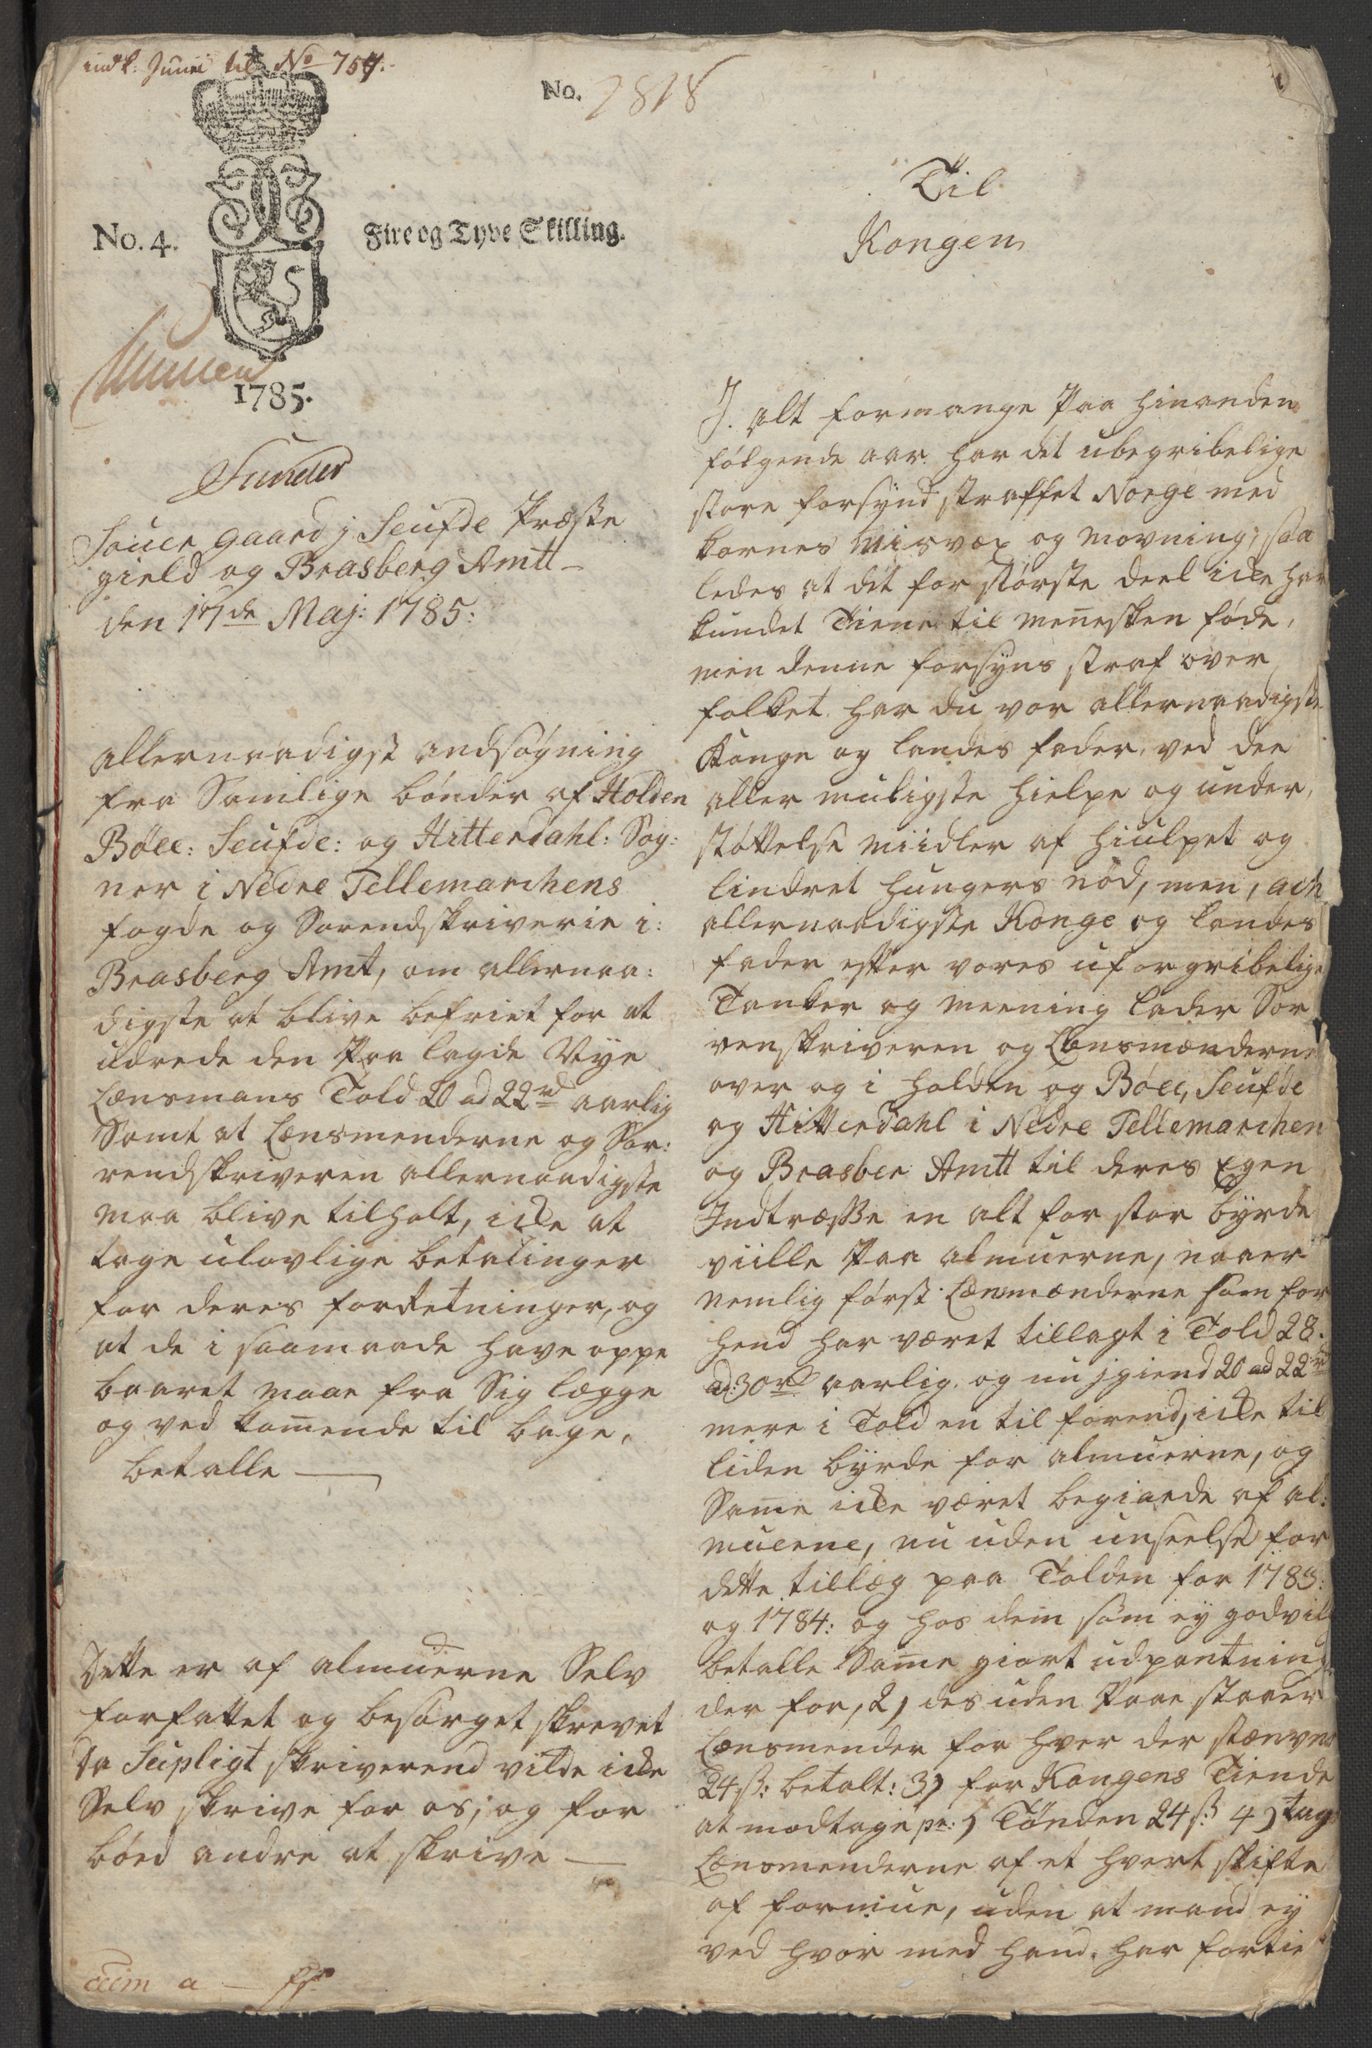 indk: Junii til No 757.
No. 2818
No. 4.
Fire og Tyve Skilling.
1785.
Sauer gaard j Seufde Præste
gield og Brasberg Amtt
den 17de Maj: 1785:
Allernaadigst andsøgning
fra Samlige bønder af Holden
Bøee: Seufde: og Hitterdahl: Sog:
ner i Nedre Tellemarchens
fogde og Sorendskriverie i:
Brasberg Amt, om allernaa:
digste at blive befriet for at
udrede den Paa lagde Nye
Lænsmans Told 20 ad 22rd aarlig
Samt at Lænsmenderne og Sor:
rendskriveren allernaadigste
maa blive tilholt, icke at
tage ulovlige betalinger
for deres forretninger, og
at de i saamaade have oppe
baaret maae fra Sig lægge
og ved komende til bage,
betalle
Dette er af almuerne Selv
forfattet og besørget skrevet
da Supligt skriverend vilde icke
Selv skrive for os; og for
bøed andre at skrive
Til
Kongen
J. Alt formange Paa hinanden
følgende aar har det ubegribelige
store forsynd straffet Norge med
kornes Misvæx og Modning, saa
ledes at det for største deel icke har
kundet Tiene til menesken føde,
men denne forsyns straf over
folket har du vor allernaadigste
Konge og landes fader, ved dee
aller muligste hielpe og under,
støttelse Miidler af hiulpet og
lindret hungers nød, men, ach
allernaadigste Konge og landes
fader efter vores uforgribelige
Tanker og meening lader Sor
renskriveren og Lænsmænderne
over og i holden og Bøee, Seufde
og Hitterdahl i Nedre Tellemarchen
og Brasber Amtt til deres Egen
Indtræsse en alt for stor byrde
viille Paa almuerne, naaer
nemlig først Lænmænderne som for
hend har været tillagt i Told 28
ad: 30rd aarlig og nu jgiend 20 ad 22rd
mere i Told en til forend, icke til
liden byrde for almuerne, og
Same icke været begiærde af al:
muerne, nu uden anseelse for
dette tillæg paa Tolden for 1783:
og 1784: og hos dem som ey godvil
betalle Same giort udpantning
der for, 2) des uden Paae staaer
Lænsmender for hver der stævnes
24 ß: betalt: 3) for Kongens Tiende
at modtage pr: 1 Tønden 24 ß 4) tage
Lænsmenderne af et hvert skifte
af formue, uden at mand ey
ved hvor med hand har fortie